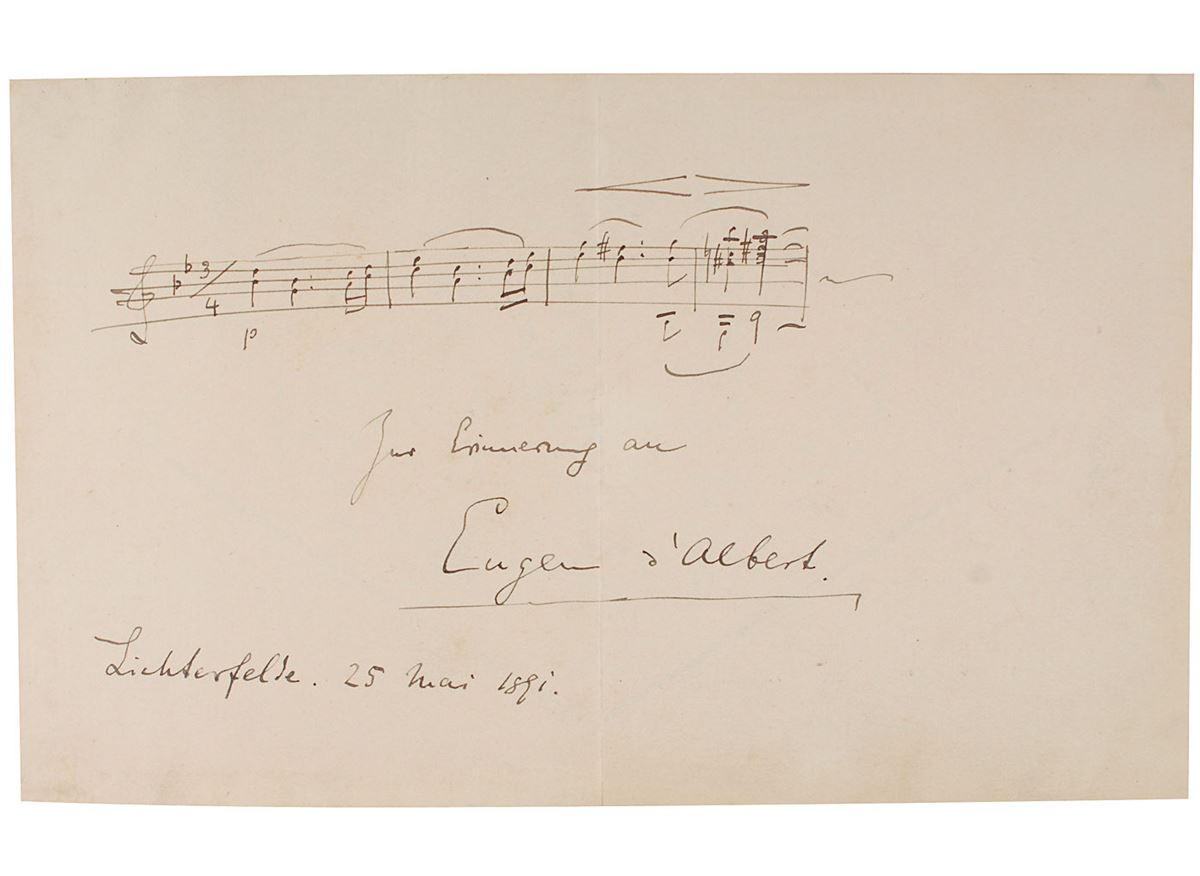 3
4
p
Zur Erinnerung an
Eugen d'Albert.
Lichterfelde. 25 Mai 1891.